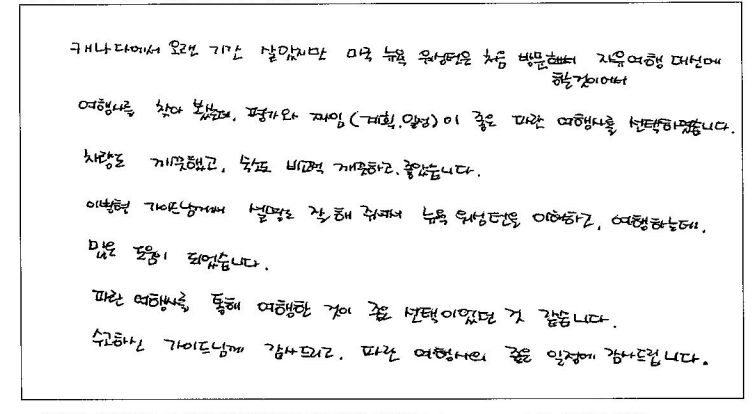 캐나다에서 오랜 기간 살았지만 미국 뉴욕 워싱턴은 처음 방문해서 자유여행 대신에
할것이어서
여행사를 찾아 봤는데, 평가와 짜임(계획.일정)이 좋은 파란 여행사를 선택하였습니다.
차량도 깨끗했고, 숙소도 비교적 깨끗하고, 좋았습니다.
가이드님께서 설명도 잘 해 주셔서 뉴욕 워싱턴을 이해하고, 여행하는데,
많은 도움이 되었습니다.
파란 여행사를 통해 여행한 것이 좋은 선택이었던 것 같습니다.
수고하신 가이드님께 감사드리고, 파란 여행사의 좋은 일정에 감사드립니다.